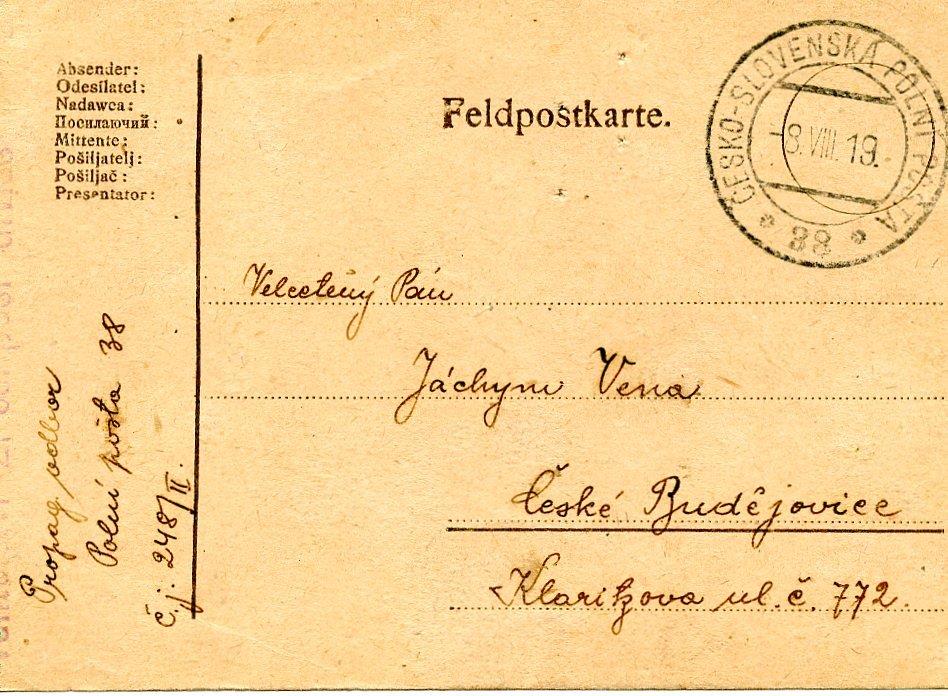 Absender:
Odesílatel:
Nadawca:
Посилаючий:
Mittente:
Pošiljatelj:
Pošiljač:
Presentator:
Feldpostkarte.
ČESKO-SLOVENSKÁ POLNÍ POŠTA
-8.VIII.19.
* 38 *
Velectený Pán
Jáchym Vena
České Budějovice
Klaritzova ul. č. 772.
Propag odbor
Polní pošta 38
Č.j. 248/II.